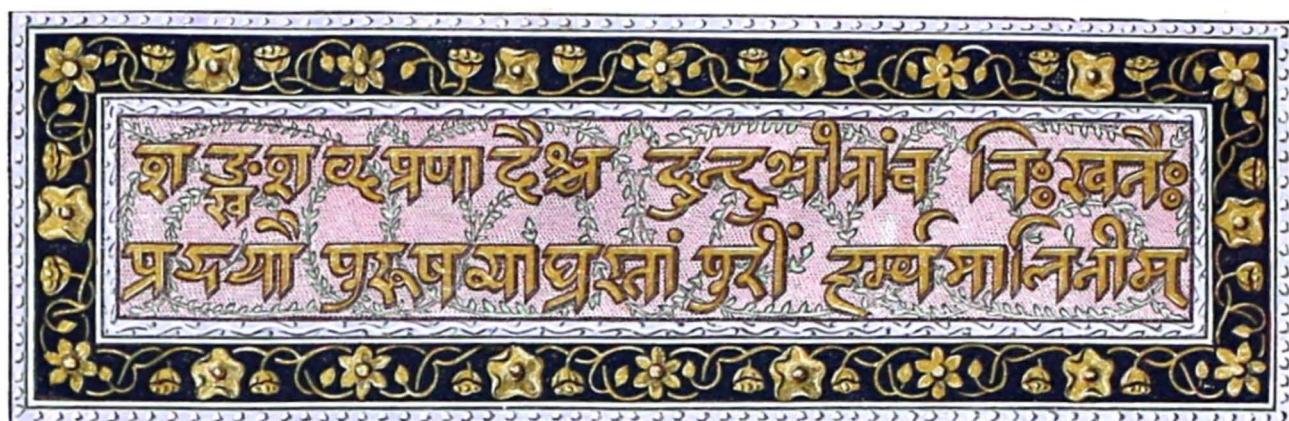 शङ्खशब्दप्रणादैश्च दुन्दुभीनांच निःस्वनैः
प्रययौ पुरूषव्याघ्रस्तां पुरीं हर्म्यमालिनीम्